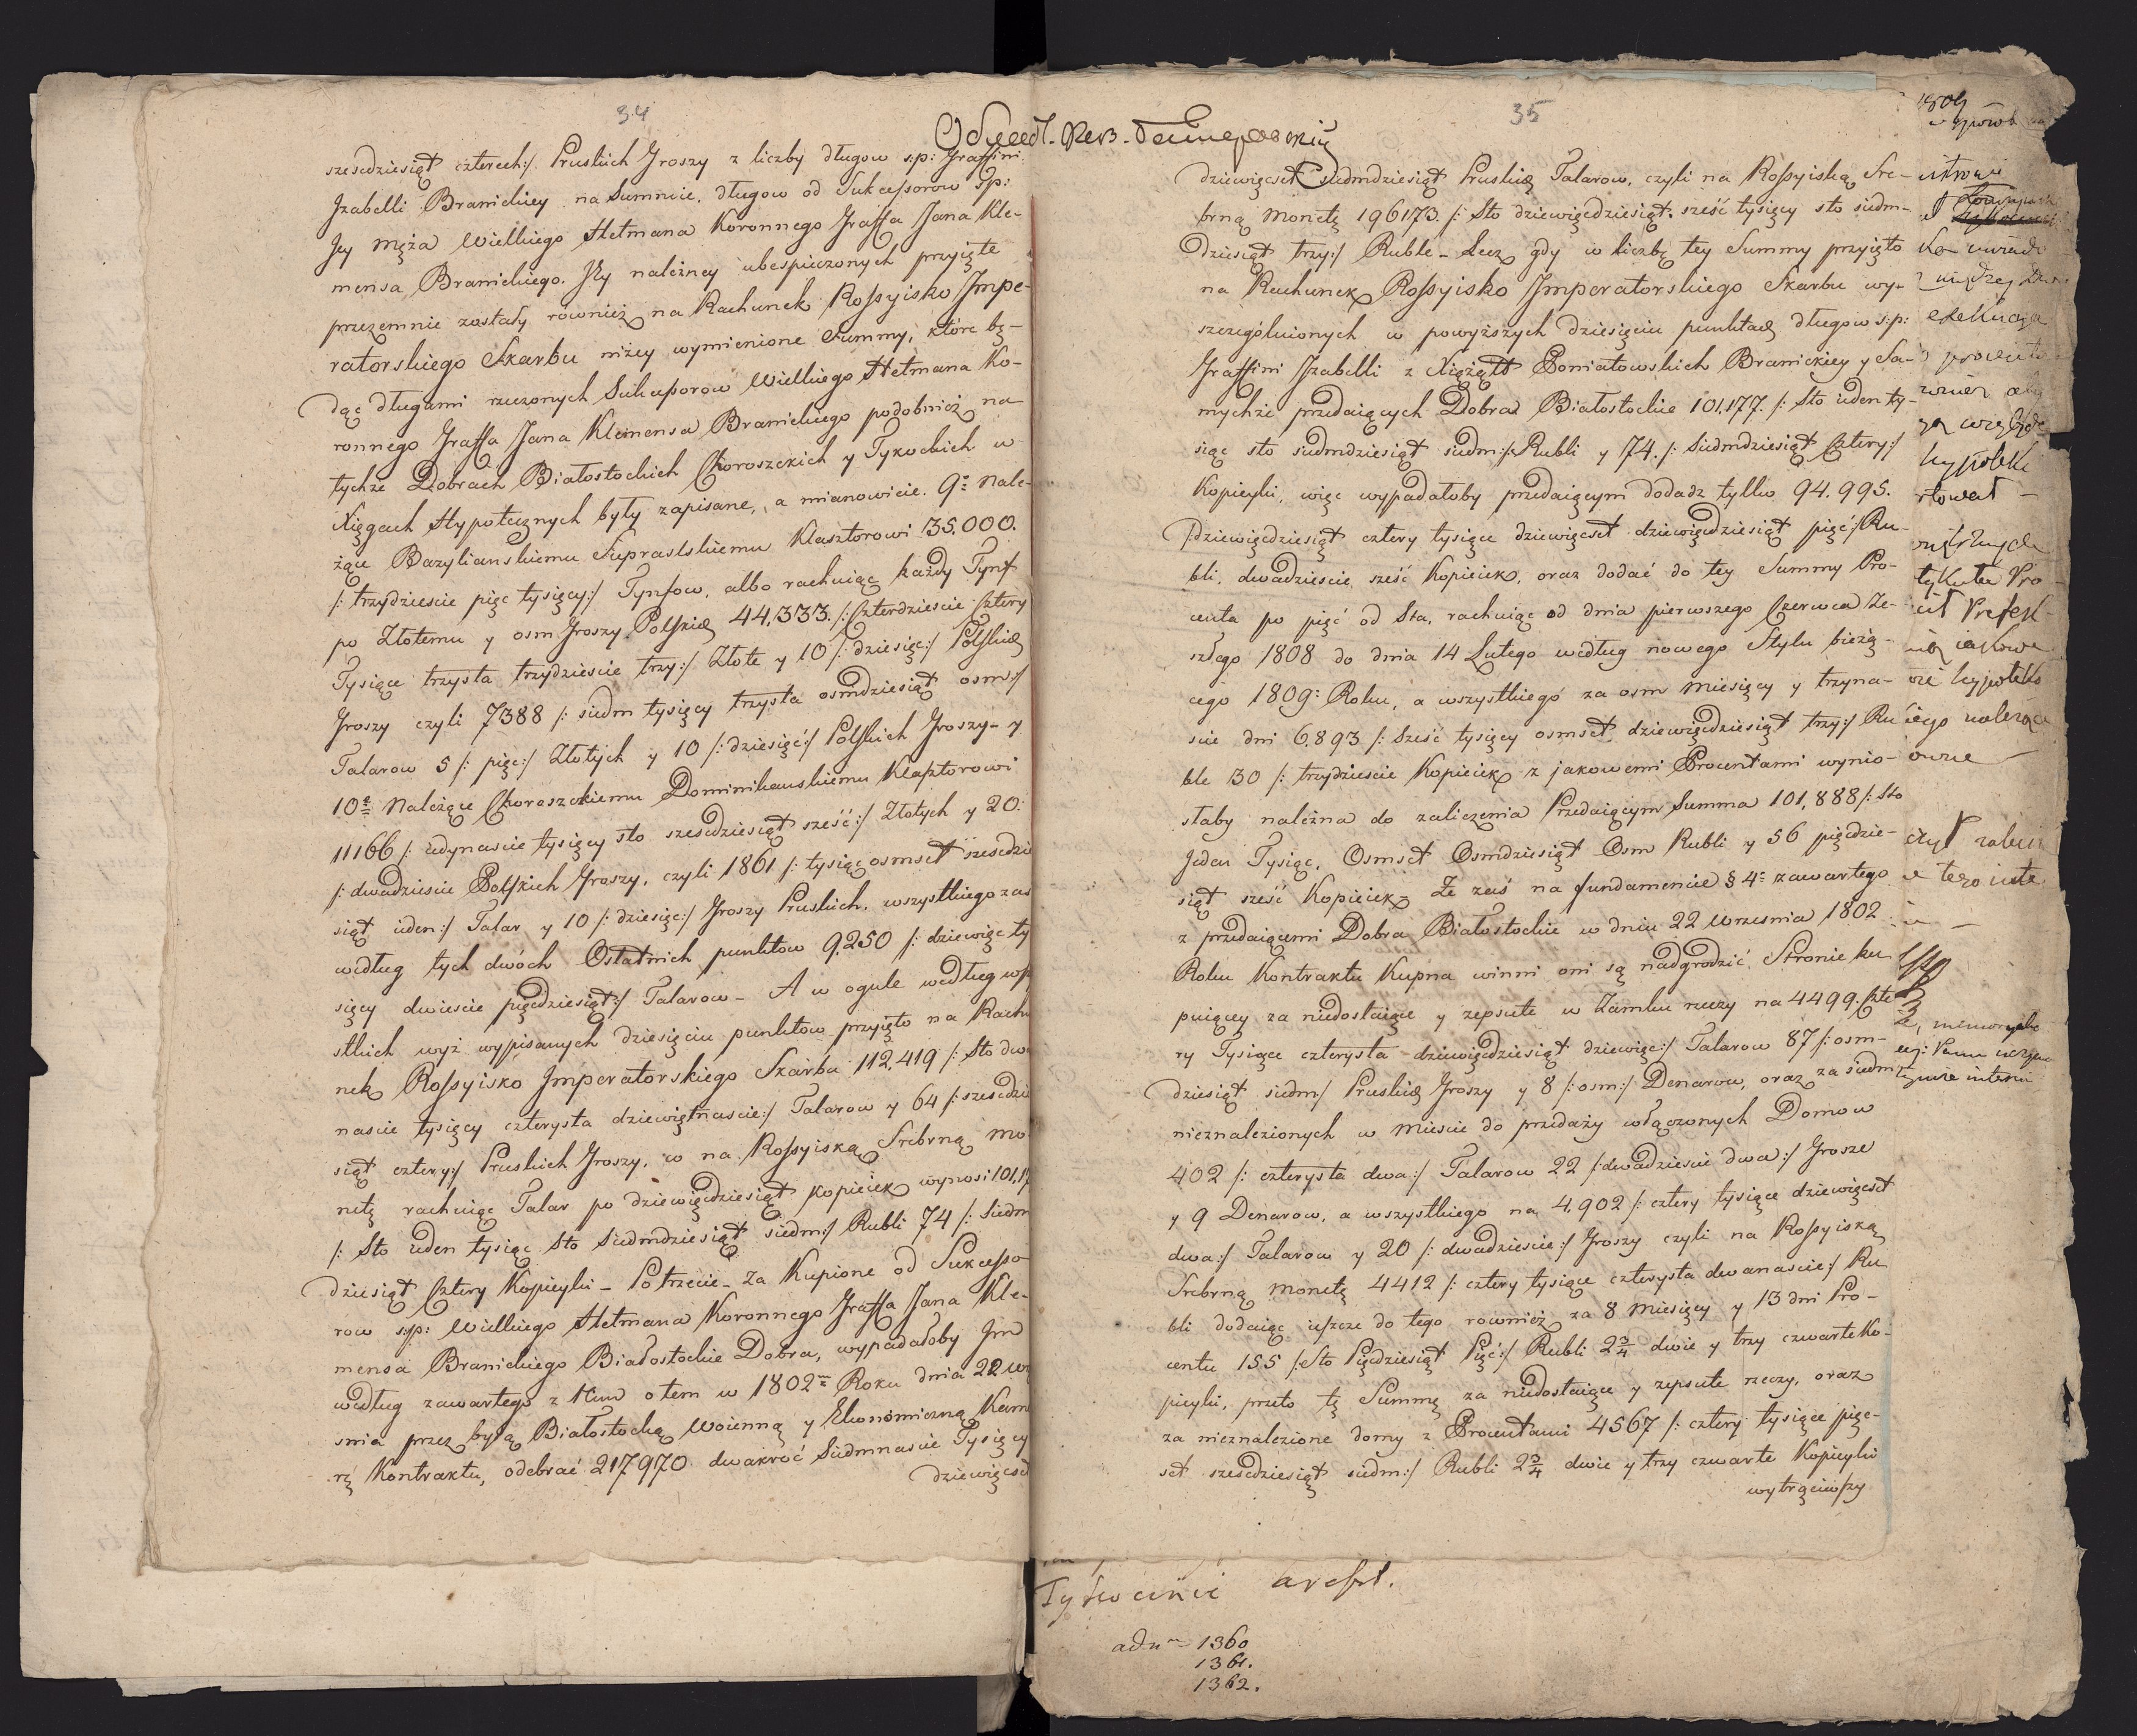 34
szescdziesiąt czterech:/ Pruskich Groszy z liczby długow s:p: Graffini
Izabelli Branickiey na Summie, długow od Sukcessorow s:p:
Jey Męża Wielkiego Hetmana Koronnego Graffa Jana Kle-
mensa Branickiego. Jey należney ubespieczonych przyięte
przezemnie zostały również na Rachunek Rossyisko Impe-
ratorskiego Skarbu niżey wymienione Summy, które bę-
dąc długami rzeczonych Sukcessorow Wielkiego Hetmana Ko-
ronnego Graffa Jana Klemensa Branickiego podobnież na
tychże Dobrach Białostockich Choroszczkich y Tykockich w
Xięgach Hypotecznych były zapisane, a mianowicie. 9° Nale-
żące Bazylianskiemu Supraslskiemu Klasztorowi 35.000.
/: trzydzieście pięc tysięcy:/ Tynfow, albo rachuiąc każdy Tynf
po Złotemu y osm Groszy Polskich 44,333. /: Czterdzieście Cztery
Tysiące trzysta trzydzieście trzy:/ Złote y 10 /: dziesięc:/ Polskich
Groszy czyli 7388 /: siedm tysięcy trzysta osmdziesiąt osm:/
Talarow 5 /: pięc:/ Złotych y 10 /: dziesięć:/ Polskich Groszy - y
10° Należące Choroszczkiemu Dominikanskiemu Klasztorowi
11166 /: iedynaście tysięcy sto szescdziesiąt sześć:/ Złotych y 20.
/: dwadzieście Polskich Groszy, czyli 1861 /: tysiąc osmset szescdzie
siąt ieden:/ Talar y 10 /: dziesięc:/ Groszy Pruskich. wszystkiego zas
według tych dwóch Ostatnich punktow 9,250 /: dziewięc ty
sięcy dwieście pięcdziesiąt:/ Talarow - A w ogule według wszy
stkich wyż wypisanych dziesięciu punktow przyięto na Rachu
nek Rossyisko Imperatorskiego Skarbu 112,419 /: Sto dwa
naście tysięcy czterysta dziewiętnaście:/ Talarow y 64 /: szescdzie
siąt cztery:/ Pruskich Groszy, co na Rossyiską Srebrną mo
netę rachuiąc Talar po dziewięcdziesiąt kopieiek wynosi 101,17
/: Sto ieden tysiąc sto Siedmdziesiąt siedm:/ Rubli 74 /: Siedm
dziesiąt Cztery Kopieyki - Potrzecie - Za Kupione od Sukcesso
row s:p: Wielkiego Hetmana Koronnego Graffa Jana Kle-
mensa Branickiego Białostockie Dobra, wypadałoby Im
według zawartego z Niemi o tem w 1802 Roku dnia 22 wrze
snia przez byłą Białostocką Woienną y Ekonomiczną Kam
rę Kontraktu, odebrać 217970 dwakroć Siedmnaście Tysięcy
dziewięcset
35
dziewięcset siedmdziesiąt Pruskich Talarow, czyli na Rossyiską Sre-
brną Monetę 196173. /: Sto dziewięcdziesiąt sześć tysięcy sto siedm-
dziesiąt trzy:/ Ruble - Lecz gdy w liczbę tey Summy przyięto
na Rachunek Rossyisko Imperatorskiego Skarbu wy-
szczególnionych w powyższych dziesięciu punktach długow s:p:
Graffini Izabelli z Xiążąt Poniatowskich Branickiey y Sa-
mychże przedaiących Dobra Białostockie 101,177. /: Sto ieden ty-
siąc sto siedmdziesiąt siedm:/ Rubli y 74. /: Siedmdziesiąt Cztery:/
Kopieyki, więc wypadałoby przedaiącym dodadz tylko 94.995.
/: dziewięcdziesiąt cztery tysiące dziewięcset dziewięcdziesiąt pięć:/ Ru-
bli, dwadzieście sześć Kopieiek, oraz dodać do tey Summy Pro-
centa po pięć od Sta, rachuiąc od dnia pierwszego Czerwca Ze-
szłego 1808 do dnia 14 Lutego według nowego Stylu bieżą-
cego 1809: Roku, a wszystkiego za osm Miesięcy y trzyna-
ście dni 6.893 /: Sześć tysięcy osmset dziewięcdziesiąt trzy:/ Ru
ble 30 /: trzydzieście Kopieiek z jakowemi Procentami wynio-
słaby należna do zaliczenia Przedaiącym Summa 101,888 /: Sto
Jeden Tysiąc, Osmset Osmdziesiąt Osm Rubli y 56 pięcdzie-
siąt sześć Kopieiek Ze zaś na fundamencie § 4° zawartego
z przedaiącemi Dobra Białostockie w dniu 22 Wrzesnia 1802
Roku Kontraktu Kupna winni oni są nadgrodzić Stronie ku
puiącey za niedostaiące y zepsute w Zamku rzeczy na 4499. Czte
ry Tysiące czterysta dziewięcdziesiąt dziewięc:/ Talarow 87 /: osm-
dziesiąt siedm:/ Pruskich Groszy y 8 /: osm:/ Denarow, oraz za siedm
nieznalezionych w Mieście do przedaży włączonych Domow
402 /: czterysta dwa:/ Talarow 22 /: dwadzieście dwa:/ Grosze
y 9 Denarow, a wszystkiego na 4,902 /: cztery tysiące dziewięcset
dwa:/ Talarow y 20 /: dwadzieście:/ Groszy czyli na Rossyiską
Srebrną Monetę 4412 /: cztery tysiące czterysta dwanaście:/ Ru
bli dodaiąc ieszcze do tego również za 8 Miesięcy y 13 dni Pro-
centu 155 /: Sto Pięcdziesiąt Pięć:/ Rubli 2¾ dwie y trzy czwarte Ko-
pieyki, przeto tę Summę za niedostaiące y zepsute rzeczy, oraz
za nieznalezione domy z Procentami 4567 /: cztery tysiące pięc-
set szescdziesiąt siedm:/ Rubli 2¾ dwie y trzy czwarte Kopieyki
wytrąciwszy
1809
exekucya
hypoteki
Tykocinie areszt.
1360
1361.
1362.